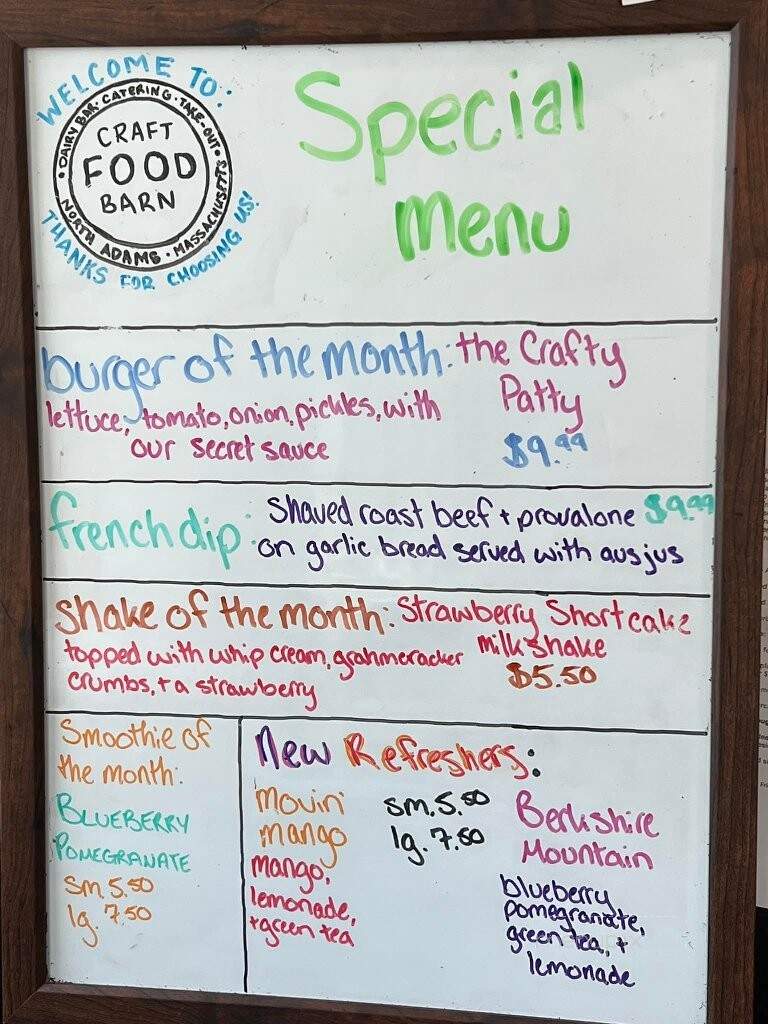 WELCOME TO:
DAIRY BAR · CATERING · TAKE-OUT ·
CRAFT
FOOD
BARN
NORTH ADAMS · MASSACHUSETTS
THANKS FOR CHOOSING US!
Special
Menu
burger of the month: the Crafty
Patty
$9.99
lettuce, tomato, onion, pickles, with
our secret sauce
french dip: Shaved roast beef + provalone $9.99
on garlic bread served with ausjus
Shake of the month: Strawberry Shortcake
milkshake
$5.50
topped with whip cream, grahmcracker
crumbs, + a strawberry
Smoothie of
the month:
BLUEBERRY
POMEGRANATE
sm 5.50
lg. 7.50
New Refreshers:
Movin'
mango
sm. 5.50
lg. 7.50
mango,
lemonade,
+green tea
Berkshire
Mountain
blueberry
pomegranate,
green tea, +
lemonade